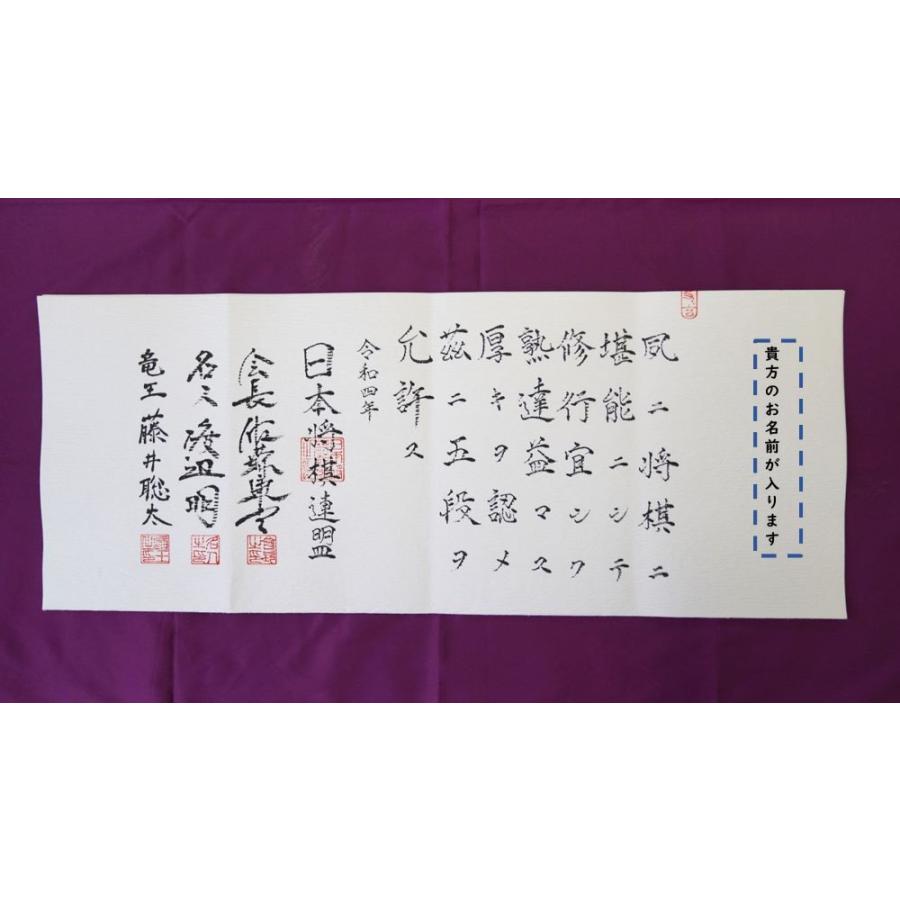 貴方のお名前が入ります
夙ニ将棋ニ
堪能ニシテ
修行宜シク
熟達益マス
厚キヲ認メ
茲ニ五段ヲ
允許ス
令和四年
日本将棋連盟
会長佐藤康光
名人渡辺明
竜王藤井聡太